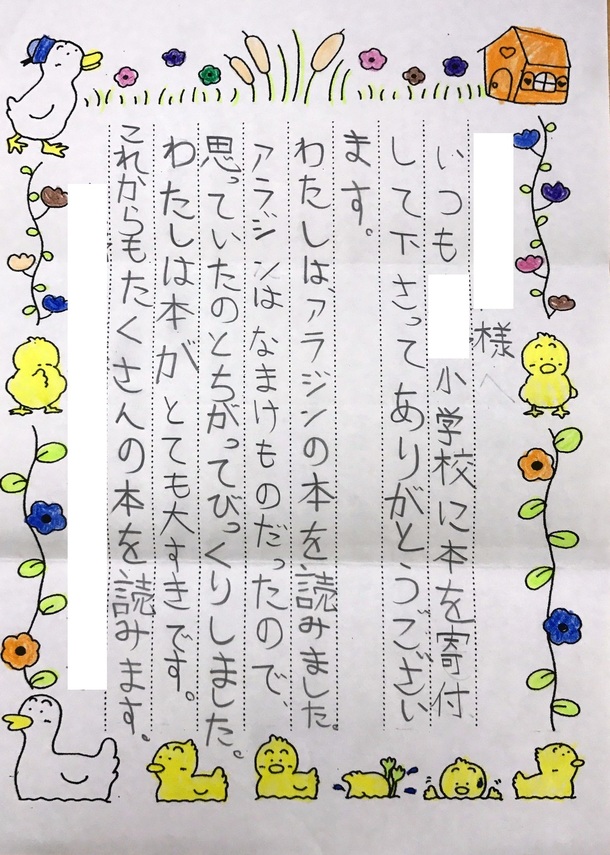 様へ
いつも 小学校に本を寄付
して下さってありがとうござい
ます。
わたしは、アラジンの本を読みました。
アラジンはなまけものだったので、
思っていたのとちがってびっくりしました。
わたしは本がとても大すきです。
これからもたくさんの本を読みます。